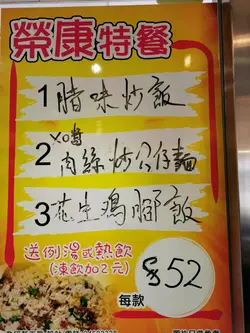 榮康特餐
1 腊味炒飯
XO醬
2 肉絲炒公仔麵
3 花生鷄腳飯
送例湯或熱飲
(凍飲加2元)
$52
每款